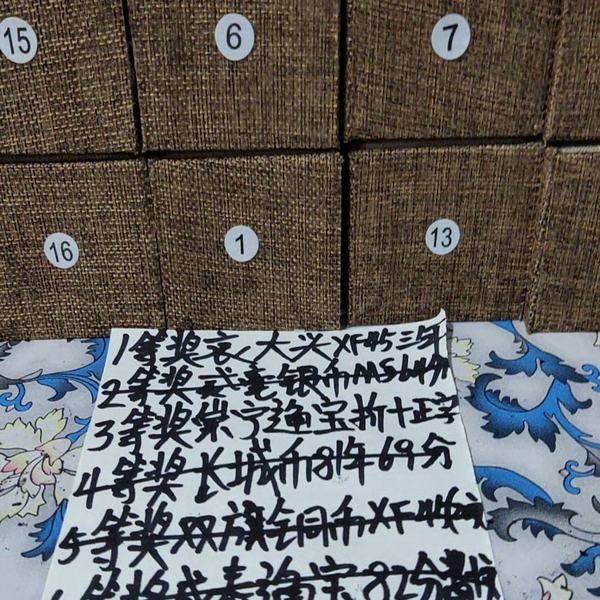 15 6 7
16 1 13
1等奖袁大头XF45三年
2等奖 银币MS64分
3等奖崇宁通宝折十正字
4等奖长城币81年69分
5等奖双旗铜币XF45
等奖 通宝82分